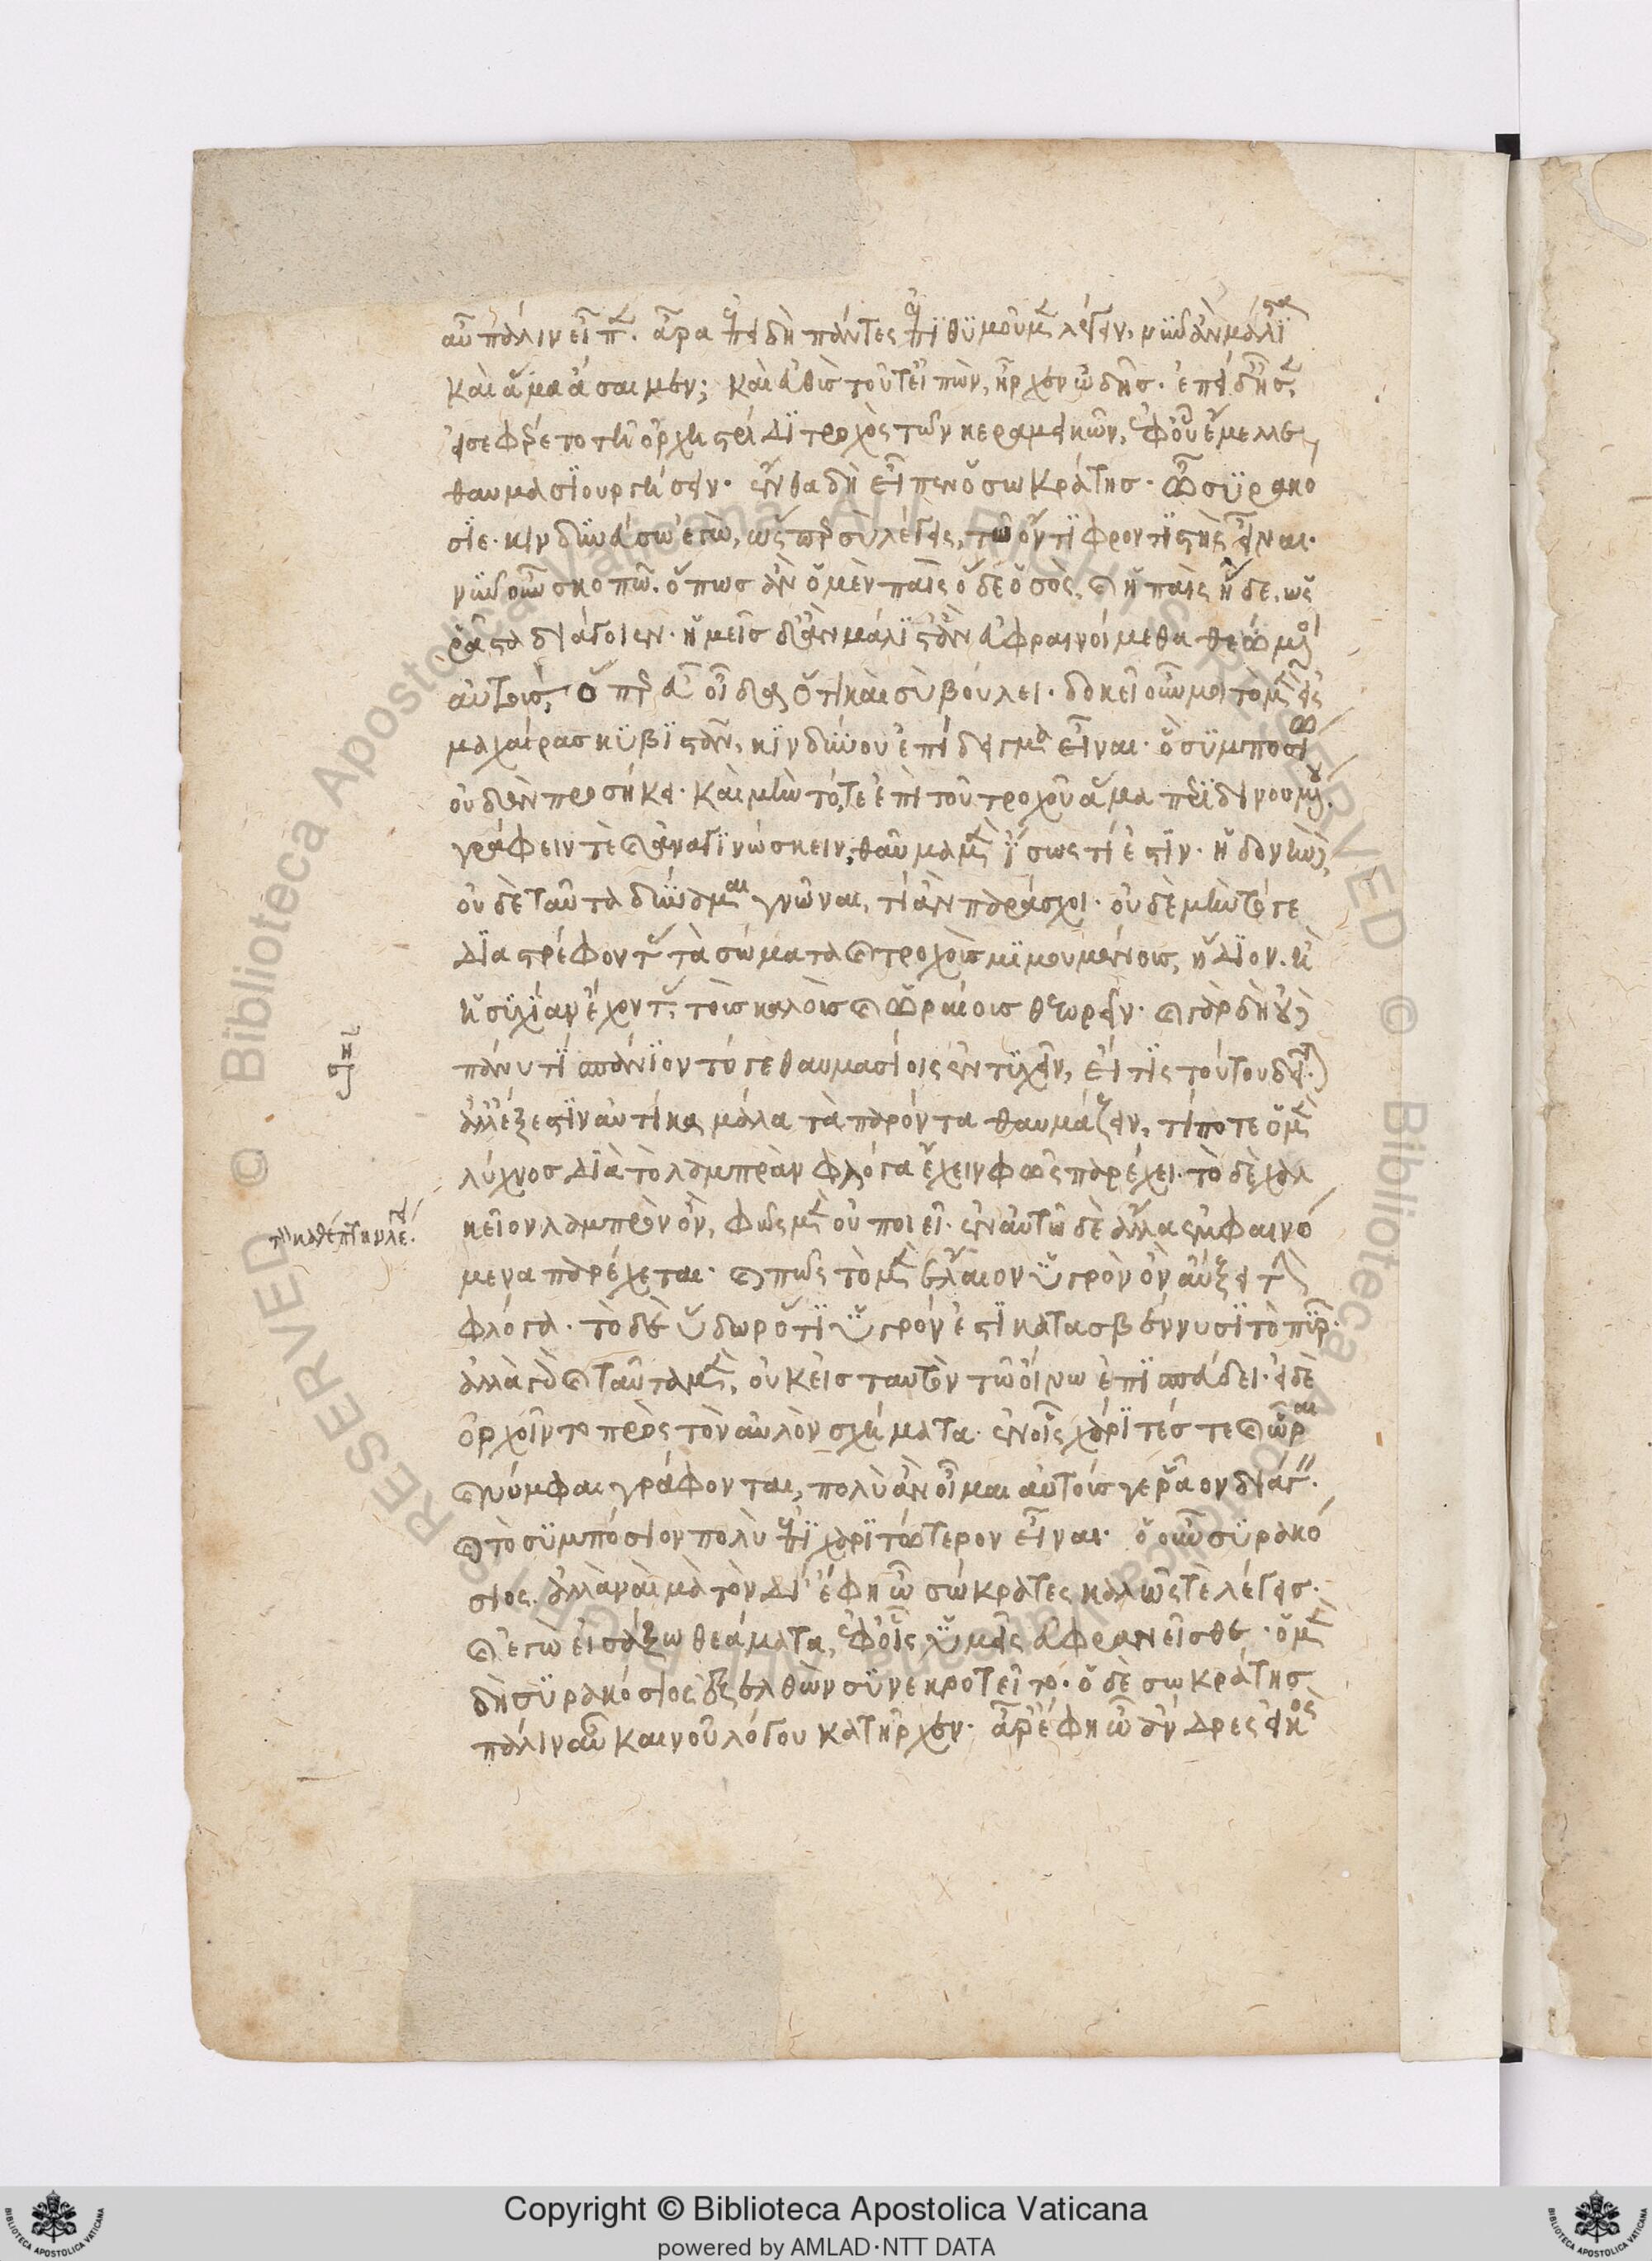 αὖ πάλιν εἶπεν. ἆρα ἐπειδὴ πάντες ἐπιθυμοῦμεν λέγειν, νῦν ἂν μάλιστα
καὶ ἅμα ἄσαιμεν; καὶ εὐθὺς τοῦτ' εἰπὼν, ἦρχεν ὠδῆς. ἐπεὶ δ' ἦσεν,
εἰσεφέρετο τῆ ὀρχηστρίδι τροχὸς τῶν κεραμεικῶν, ἐφ' οὗ ἔμελλε
θαυμασιουργήσειν. ἔνθα δὴ εἶπεν ὁ σωκράτης. ὦ συρακό
σιε. κινδυνεύω ἐγὼ, ὥσπερ σὺ λέγεις, τῶ ὄντι φροντιστὴς εἶναι.
νῦν οὖν σκοπῶ. ὅπως ἂν ὁ μὲν παῖς ὅδε ὁ σὸς, καὶ ἡ παῖς ἥδε, ὡς
ῥᾶστα διάγοιεν. ἡμεῖς δ' ἂν μάλιστ' ἂν εὐφραινοίμεθα θεώμενοι
αὐτοὺς, ὅπερ εὖ οἶδα ὅτι καὶ σὺ βούλει. δοκεῖ οὖν μοι τὸ μὲν εἰς
μαχαίρας κυβιστᾶν, κινδύνου ἐπίδειγμα εἶναι. ὃ συμποσίω
οὐδὲν προσήκει. καὶ μὴν τό, τε ἐπὶ τοῦ τροχοῦ ἅμα περιδινουμένου
γράφειν τὲ καὶ ἀναγινώσκειν, θαῦμα μὲν ἴσως τί ἐστιν. ἡδονὴν δὲ
οὐδὲ ταῦτα δύναμαι γνῶναι, τίν' ἂν παράσχοι. οὐδὲ μὴν τό γε
διαστρέφοντας τὰ σώματα καὶ τροχοὺς μιμουμένους, ἥδιον. ἢ
ἡσυχίαν ἔχοντας τοὺς καλοὺς καὶ ὡραίους θεωρεῖν. καὶ γὰρ δὴ οὐδὲ
πάνυ τὶ σπάνιον τό γε θαυμασίοις ἐντυχεῖν, εἴ τις τούτου δεῖται.
ἀλλ' ἔξεστιν αὐτίκα μάλα τὰ παρόντα θαυμάζειν, τί ποτε ὁ μὲν
λύχνος διὰ τὸ λαμπρὰν φλόγα ἔχειν φῶς παρέχει. τὸ δὲ χαλ
κεῖον λαμπρὸν ὂν, φῶς μὲν οὐ ποιεῖ. ἐν αὐτῶ δὲ ἄλλα ἐμφαινό
μενα παρέχεται. καὶ πῶς τὸ μὲν ἔλαιον ὑγρὸν ὂν αὔξει τὴν
φλόγα. τὸ δὲ ὕδωρ ὅτι ὑγρόν ἐστι κατασβέννυσι τὸ πῦρ.
ἀλλὰ γὰρ καὶ ταῦτα μὲν, οὐκ εἰς ταυτὸν τῶ οἴνω ἐπισπεύδει. εἰ δὲ
ὀρχοῖντο πρὸς τὸν αὐλὸν σχήματα. ἐν οἷς χάριτές τε καὶ ὧραι
καὶ νύμφαι γράφονται, πολὺ ἂν οἶμαι αὐτούς γε ῥᾶον διάγειν.
καὶ τὸ συμπόσιον πολὺ ἐπιχαριτώτερον εἶναι. ὁ οὖν συρακό
σιος. ἀλλὰ ναὶ μὰ τὸν δί' ἔφη ὦ σώκρατες καλῶς τὲ λέγεις.
καὶ ἐγὼ εἰσάξω θεάματα, ἐφ' οἷς ὑμεῖς εὐφρανεῖσθε. ὁ μὲν
δὴ συρακόσιος ἐξελθὼν συνεκροτεῖτο. ὁ δὲ σωκράτης
πάλιν αὖ καινοῦ λόγου κατῆρχεν. ἆρ' ἔφη ὦ ἄνδρες εἰκὸς